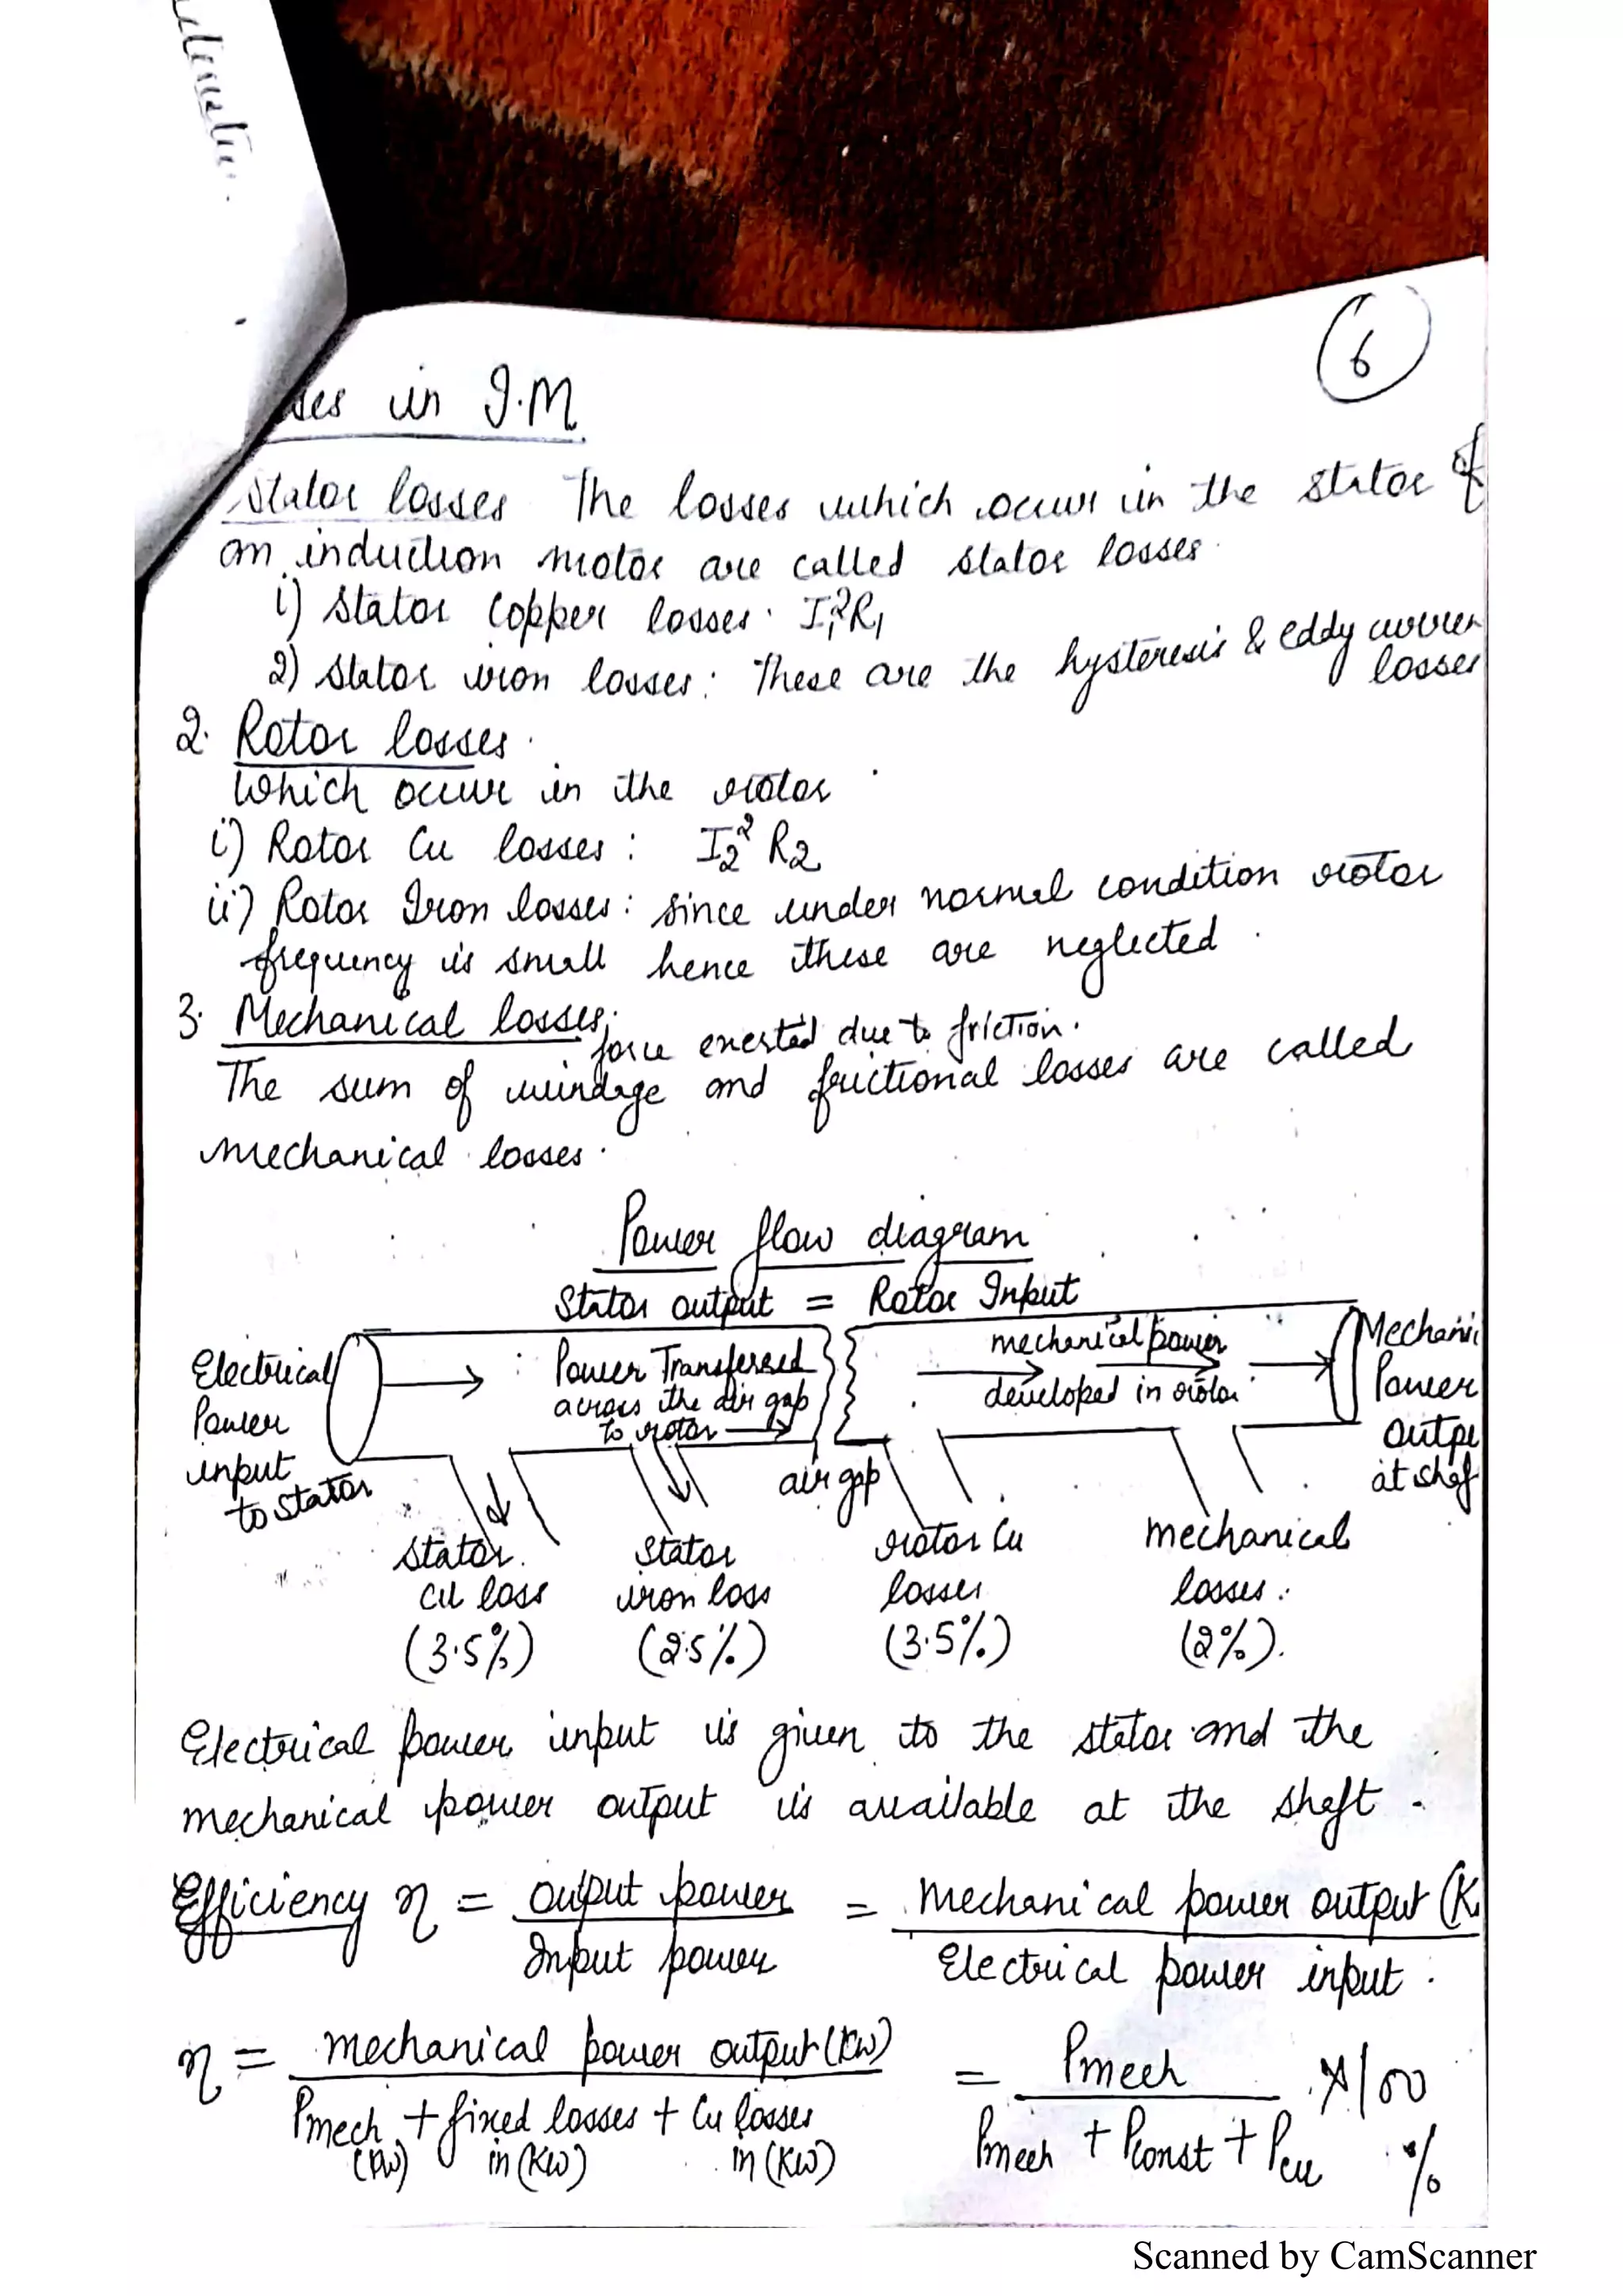 6
ses in I.M.
Stator losses The losses which occur in the stator of
an induction motor are called stator losses.
i) Stator Copper losses. I₁²R₁
2) Stator iron losses: These are the hysteresis & eddy curren
losses
2. Rotor losses.
Which occur in the rotor.
i) Rotor Cu losses: I₂² R₂
ii) Rotor Iron losses: Since under normal condition rotor
frequency is small hence these are neglected.
3. Mechanical losses;
force exerted due to friction.
The sum of windage and frictional losses are called
mechanical losses.
Power flow diagram
Stator output = Rotor Input
Electrical
Power
input
to stator
Power Transferred
across the air gap
to rotor
mechanical power
developed in rotor
Mechani
Power
outpu
at shaf
air gap
Stator
cu loss
(3.5%)
Stator
iron loss
(2.5%)
rotor Cu
losses
(3.5%)
mechanical
losses.
(2%).
Electrical power input is given to the stator and the
mechanical power output is available at the shaft.
Efficiency η = output power / Input power = Mechanical power output (K / Electrical power input.
η = mechanical power output (KW) / Pmech (KW) + fixed losses in (KW) + Cu losses in (KW) = Pmech / Pmech + Pconst + Pcu × 100 %
Scanned by CamScanner